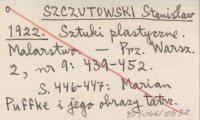 SZCZUTOWSKI Stanisław
1922. Sztuki plastyczne.
Malarstwo. — Prz. Warsz.
2, nr 9: 439-452.
S. 446-447: Marian
Puffke i jego obrazy tatr.